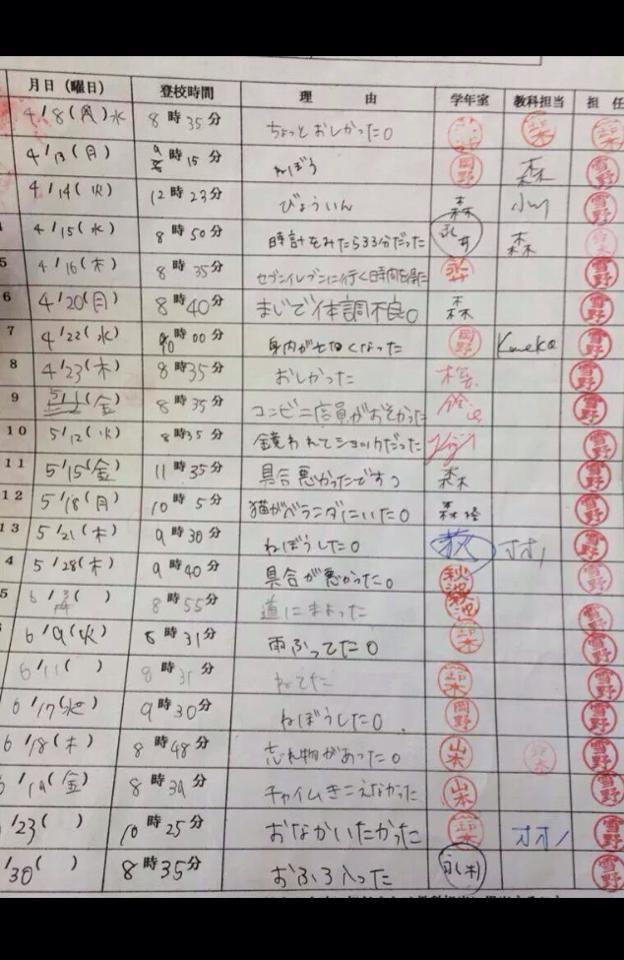 月日(曜日) 登校時間 理由 学年室 教科担当 担任
4/8(月)水 8時35分 ちょっとおしかった。
4/13(月) 9時15分 ねぼう 岡野 森 雪野
4/14(火) 12時23分 びょういん 森 小川 雪野
4/15(水) 8時50分 時計をみたら33分だった 永井 森
5 4/16(木) 8時35分 セブンイレブンに行く時間を 雪野
6 4/20(月) 8時40分 まじで体調不良。 森 雪野
7 4/22(水) 10時00分 身内が亡くなった 岡野 Kaneko 雪野
8 4/23(木) 8時35分 おしかった 雪野
9 5/1(金) 8時35分 コンビニ店員がおそかった 雪野
10 5/12(火) 8時35分 鏡われてショックだった 雪野
11 5/15(金) 11時35分 具合悪かったですっ 森 雪野
12 5/18(月) 10時5分 猫がベランダにいた。 森 雪野
13 5/21(木) 9時30分 ねぼうした。 荻 オオノ 雪野
4 5/28(木) 9時40分 具合が悪かった。 雪野
5 6/ ( ) 8時55分 道にまよった 雪野
6/9(火) 8時31分 雨ふってた。 鈴木 雪野
6/11( ) 8時31分 ねてた 鈴木 雪野
6/17(水) 9時30分 ねぼうした。 岡野 雪野
6/18(木) 8時48分 忘れ物があった。 山本 鈴木 雪野
6/19(金) 8時39分 チャイムきこえなかった 山本 雪野
/23( ) 10時25分 おなかいたかった 鈴木 オオノ 雪野
/30( ) 8時35分 おふろ入った 雪野